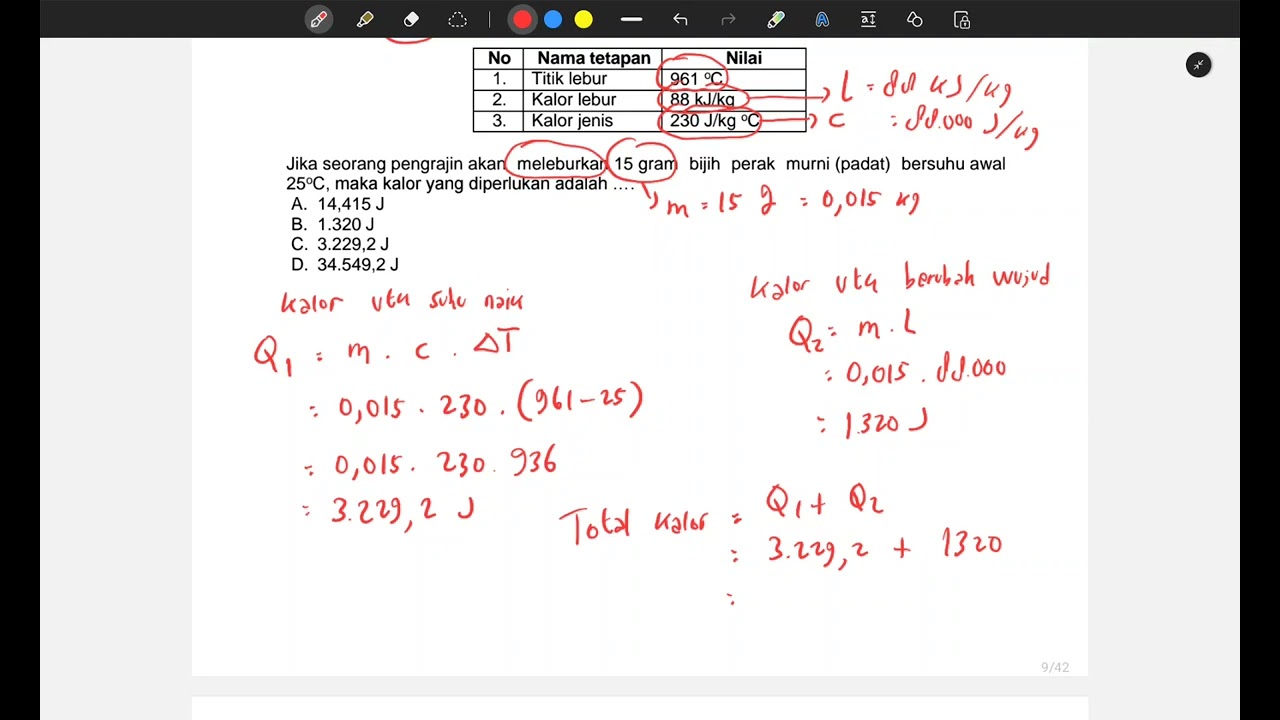 No Nama tetapan Nilai
1. Titik lebur 961 °C
2. Kalor lebur 88 kJ/kg
3. Kalor jenis 230 J/kg °C
L = 88 kJ/kg
c = 88.000 J/kg
Jika seorang pengrajin akan meleburkan 15 gram bijih perak murni (padat) bersuhu awal
25°C, maka kalor yang diperlukan adalah ….
m = 15 g = 0,015 kg
A. 14,415 J
B. 1.320 J
C. 3.229,2 J
D. 34.549,2 J
Kalor utk suhu naik
Q1 = m . c . ΔT
= 0,015 . 230 . (961 - 25)
= 0,015 . 230 . 936
= 3.229,2 J
Kalor utk berubah wujud
Q2 = m . L
= 0,015 . 88.000
= 1.320 J
Total kalor = Q1 + Q2
= 3.229,2 + 1320
=
9/42